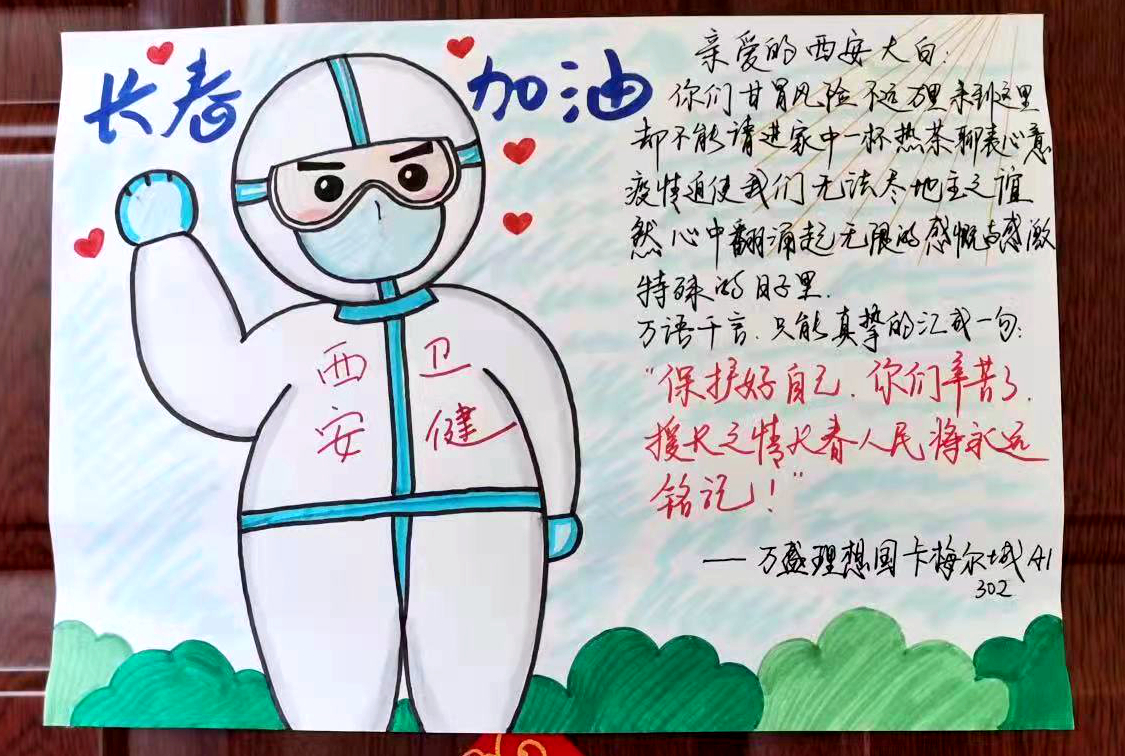 长春 加油
西 卫
安 健
亲爱的西安大白:
你们甘冒风险不远万里来到这里
却不能请进家中一杯热茶聊表心意
疫情迫使我们无法尽地主之谊
然心中翻涌起无限的感慨与感激
特殊的日子里.
万语千言.只能真挚的汇成一句:
“保护好自己.你们辛苦了.
援长之情长春人民将永远
铭记!”
——万盛理想国卡梅尔城A1
302